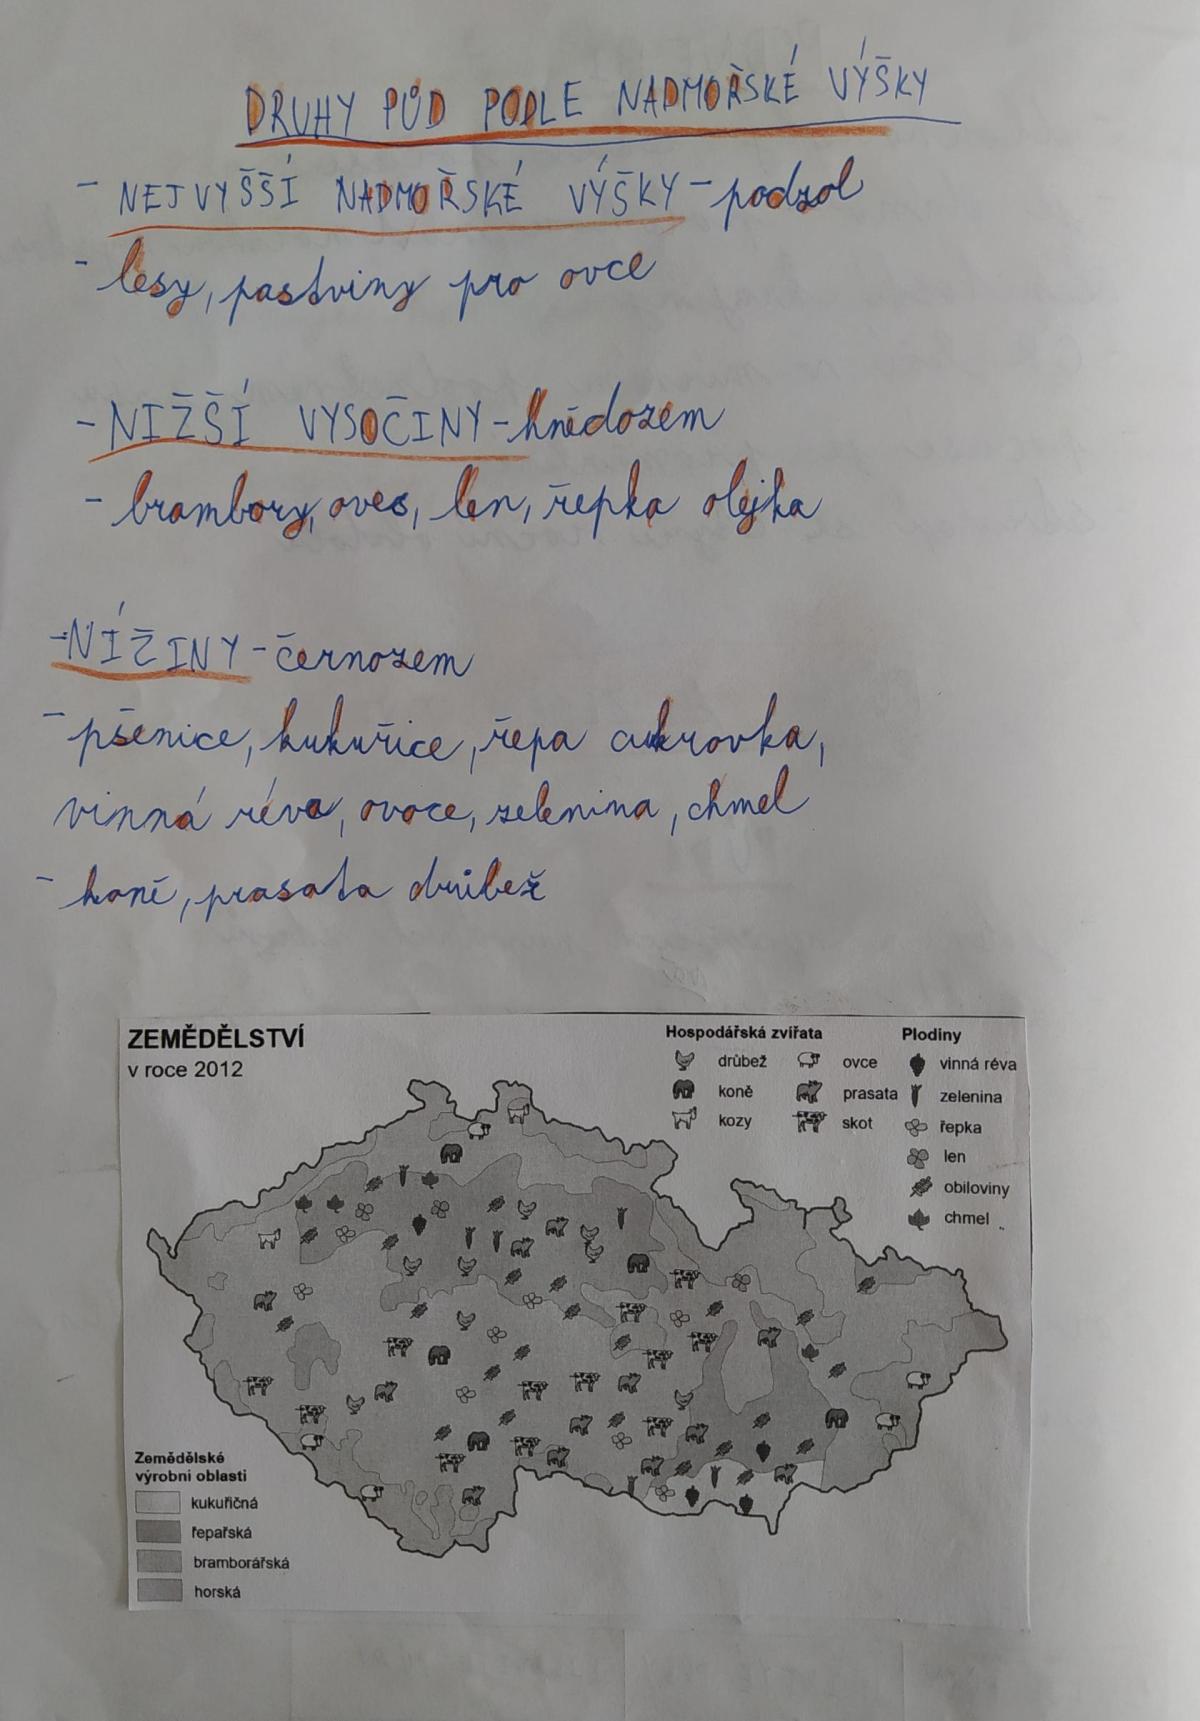 DRUHY PŮD PODLE NADMOŘSKÉ VÝŠKY
- NEJVYŠŠÍ NADMOŘSKÉ VÝŠKY - podzol
- lesy, pastviny pro ovce
- NIŽŠÍ VYSOČINY - hnědozem
- brambory, oves, len, řepka olejka
- NÍŽINY - černozem
- pšenice, kukuřice, řepa cukrovka,
vinná réva, ovoce, zelenina, chmel
- koně, prasata drůbež
ZEMĚDĚLSTVÍ
v roce 2012
Hospodářská zvířata
drůbež
ovce
koně
prasata
kozy
skot
Plodiny
vinná réva
zelenina
řepka
len
obiloviny
chmel
Zemědělské
výrobní oblasti
kukuřičná
řepařská
bramborářská
horská